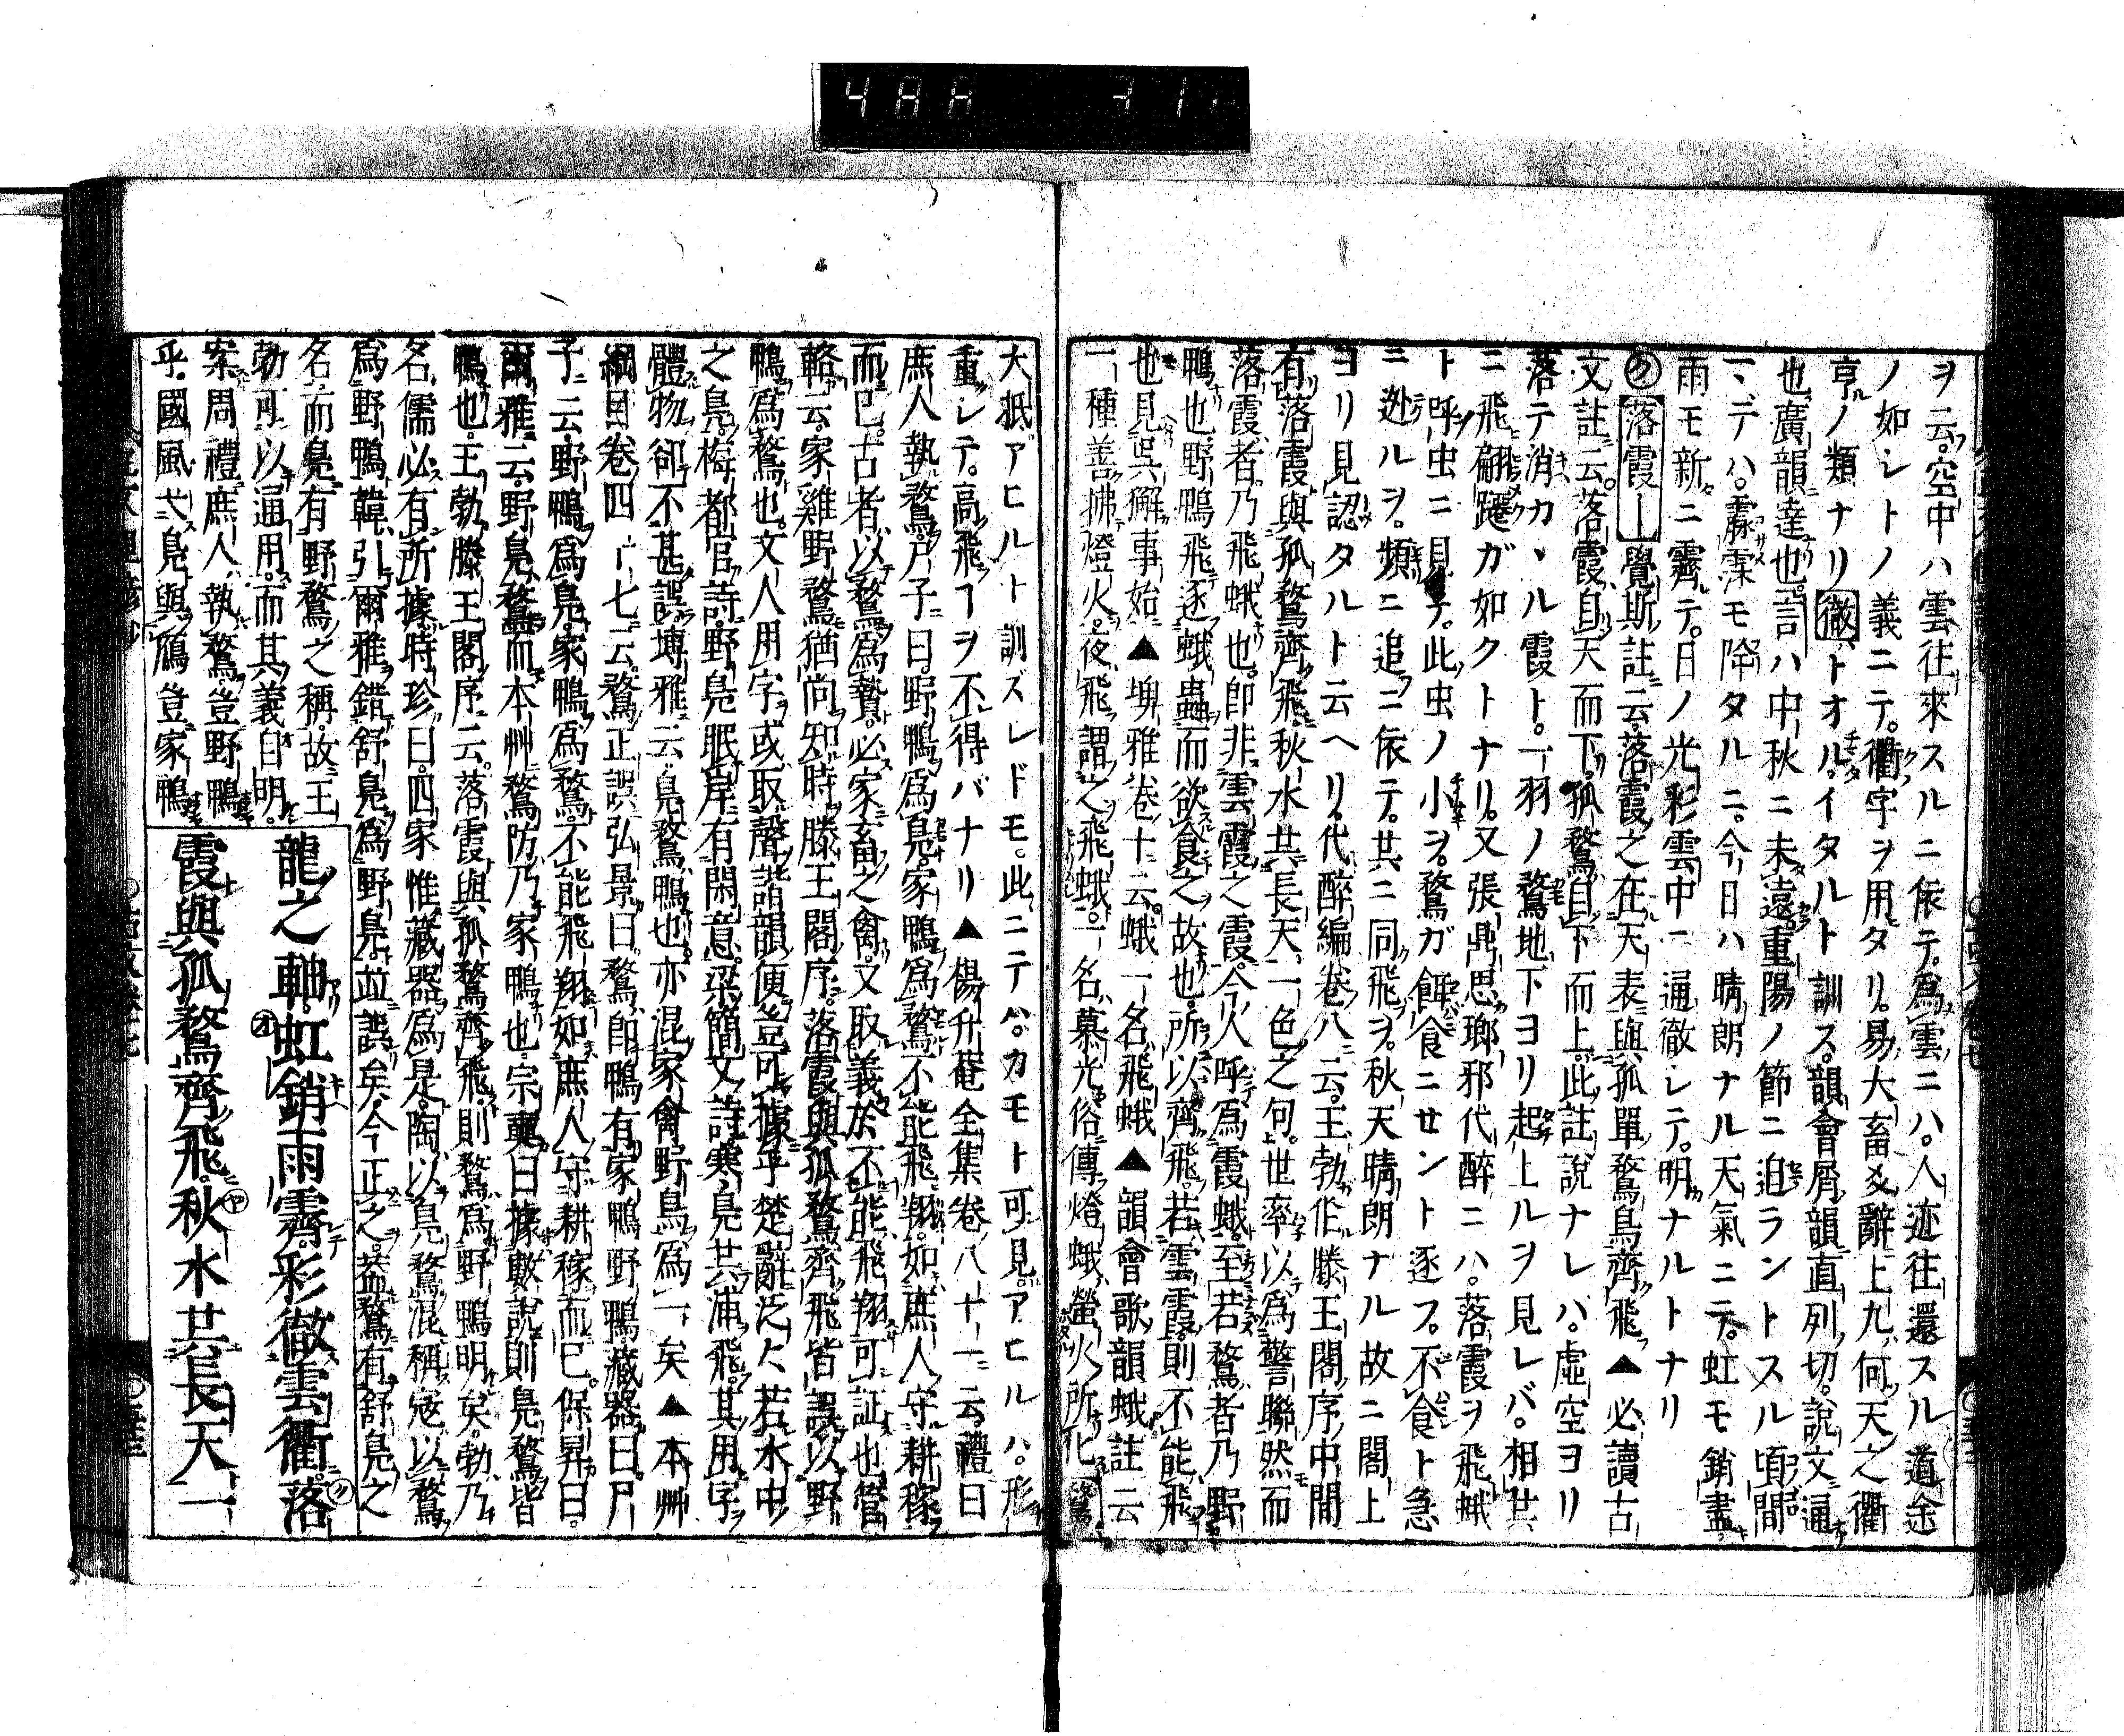 ヲ云空中ハ雲往來スルニ依テ爲雲ニハ人迹往還スル道途
ノ如シトノ義ニテ衢字ヲ用タリ易大畜爻辭上九何天之衢
亨ノ類ナリ徹トオルイタルト訓ス韻會屑韻直列切說文通
也廣韻達也言ハ中秋ニ未遠重陽ノ節ニ迫ラントスル頃間
一テハ霡霂モ降タルニ今日ハ晴朗ナル天氣ニテ虹モ銷盡
雨モ新ニ霽テ日ノ光彩雲中ニ通徹シテ明ナルトナリ
落霞覺斯註云落霞之在天表與孤單鶩鳥齊飛▲必讀古
文註云落霞自天而下孤鶩自下而上此註說ナレハ虛空ヨリ
落テ消カヽル霞ト一羽ノ鶩地下ヨリ起上ルヲ見レバ相共
ニ飛翩躚ガ如クトナリ又張鼎思瑯邪代醉ニハ落霞ヲ飛蛾
ト呼虫ニ見テ此虫ノ小ヲ鶩ガ餌食ニセント逐フ不食ト急
ニ迯ルヲ頻ニ追ニ依テ其ニ同飛ヲ秋天晴朗ナル故ニ閣上
ヨリ見認タルト云ヘリ代醉編卷八云王勃作滕王閣序中間
有落霞與孤鶩齊飛秋水共長天一色之句世率以爲警聯然而
落霞者乃飛蛾也卽非雲霞之霞今人呼爲霞蛾至若鶩者乃野
鴨也野鴨飛逐蛾蟲而欲食之故也所以齊飛若雲霞則不能飛
也見吳獬事始▲埤雅卷十云蛾一名飛蛾▲韻會歌韻蛾註云
一種善拂燈火夜飛謂之飛蛾一名慕光俗傳燈蛾螢火所化
大抵アヒルト訓ズレドモ此ニテハカモト可見アヒルハ形
重シテ高飛ヿヲ不得バナリ▲楊升菴全集卷八十一云禮曰
庶人執鶩尸子曰野鴨爲鳧家鴨爲鶩不能飛翔如庶人守耕稼
而已古者以鶩爲贄必家畜之禽又取義於不能飛翔可証也管
輅云家雞野鶩猶尚知時滕王閣序落霞與孤鶩齊飛皆誤以野
鴨爲鶩也文人用字或取聲諧韻便豈可據乎楚辭泛々若水中
之鳧梅都官詩野鳧眠岸有閑意梁簡文詩寒鳧共浦飛其用字
體物卻不甚誤埤雅云鳧鶩鴨也亦混家禽野鳥爲一矣▲本艸
綱目卷四十七云鶩正誤弘景曰鶩卽鴨有家鴨野鴨藏器曰尸
子云野鴨爲鳧家鴨爲鶩不能飛翔如庶人守耕稼而已保昇曰
爾雅云野鳧鶩而本艸鶩肪乃家鴨也宗奭曰據數說則鳧鶩皆
鴨也王勃滕王閣序云落霞與孤鶩齊飛則鶩爲野鴨明矣勃乃
名儒必有所據時珍曰四家惟藏器爲是陶以鳧鶩混稱寇以鶩
爲野鴨韓引爾雅錯舒鳧爲野鳧竝誤矣今正之蓋鶩有舒鳧之
名而鳧有野鶩之稱故王
勃可以通用而其義自明
案周禮庶人執鶩豈野鴨
乎國風弋鳧與鴈豈家鴨
龍之軸虹銷雨霽彩徹雲衢落
霞與孤鶩齊飛秋水共長天一